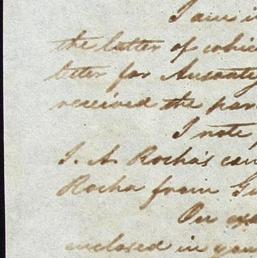 I am i
the latter of whic
letter for Ansaaty
received the par
I note,
J. A. Rocha's can
Rocha from Gu
On exa
enclosed in your